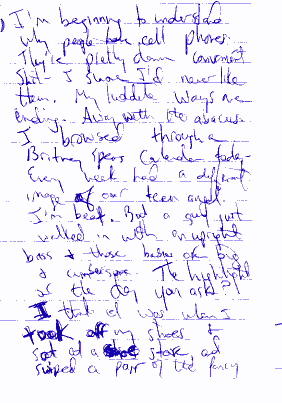 I'm beginning to understand
why people have cell phones.
They're pretty damn convenient
Shit - I swore I'd never like
them. My luddite ways are
ending. Away with the abacus.
I browsed through a
Britney Spears Calendar today-
Every week had a different
image of our teen angel.
I'm beat. But a guy just
walked in with an upright
bass & those babies are big
& cumbersome. The highlight
of the day you ask?
I think it was when I
took off my shoes &
sat at a store, and
swiped a pair of the fancy